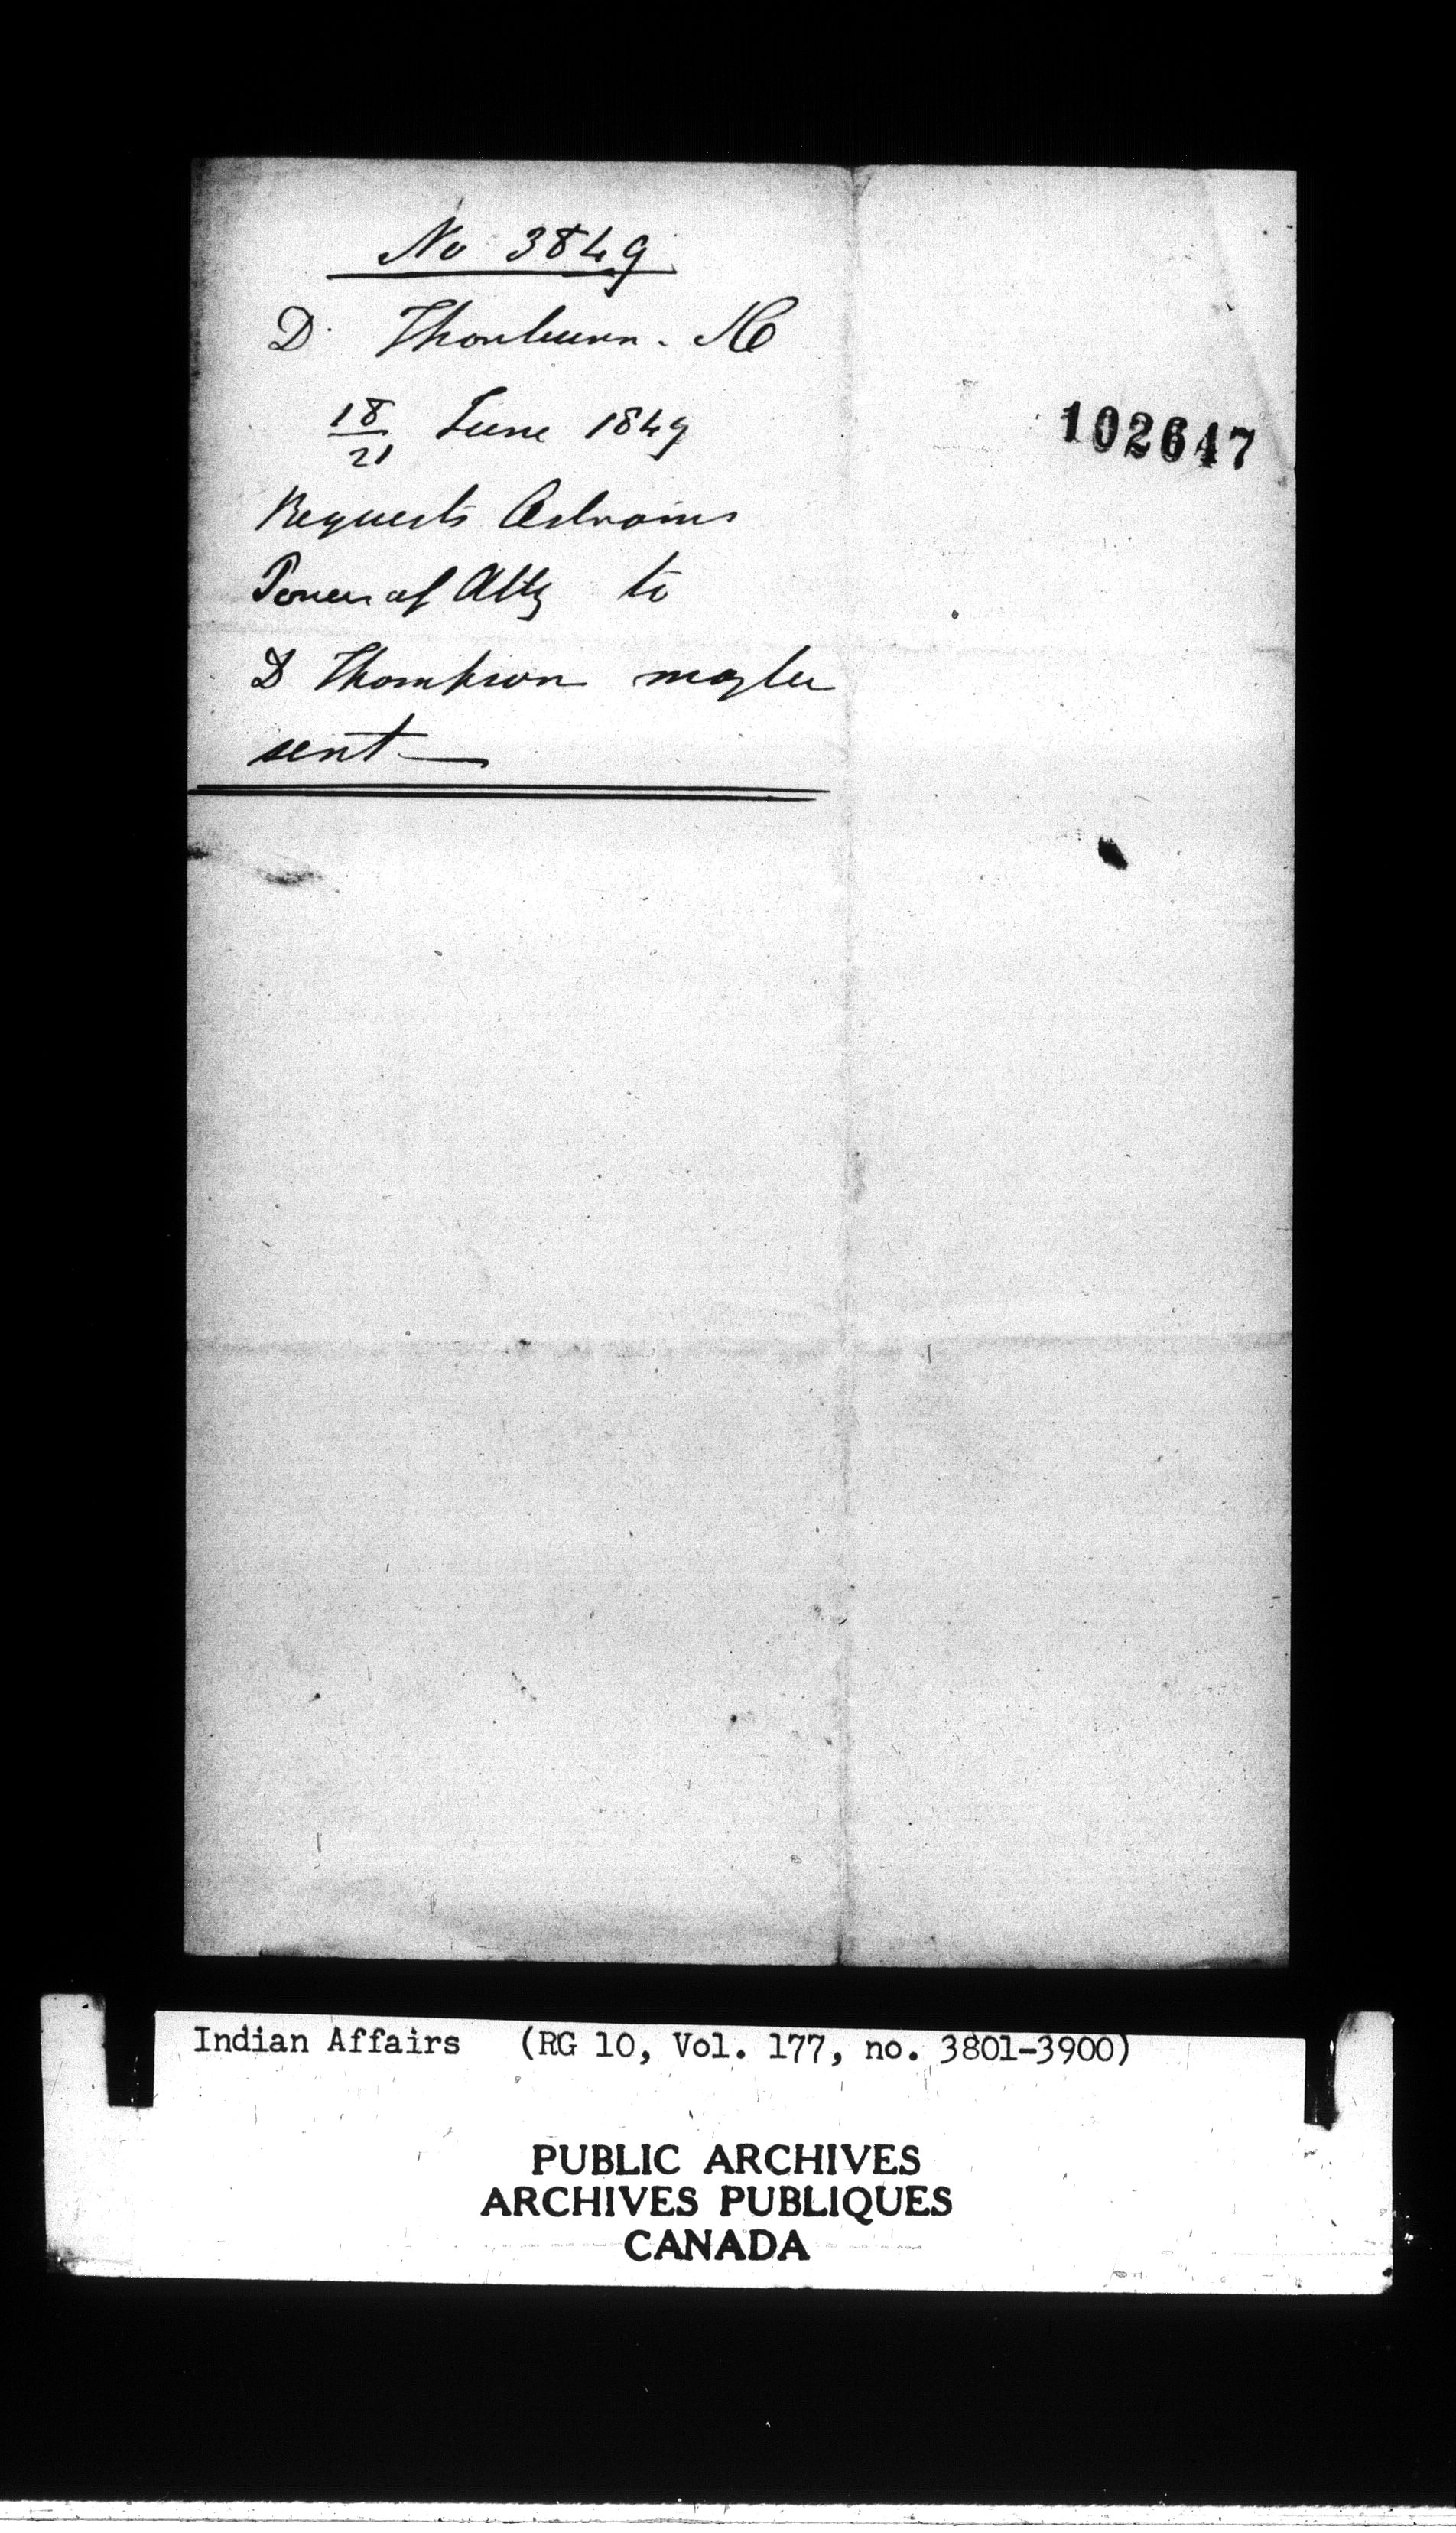 No 3849
D. Thorburn.
18/21 June 1849
Requests
Power of Atty to
D Thompson may be
sent
102647
Indian Affairs (RG 10, Vol. 177, no. 3801-3900)
PUBLIC ARCHIVES
ARCHIVES PUBLIQUES
CANADA